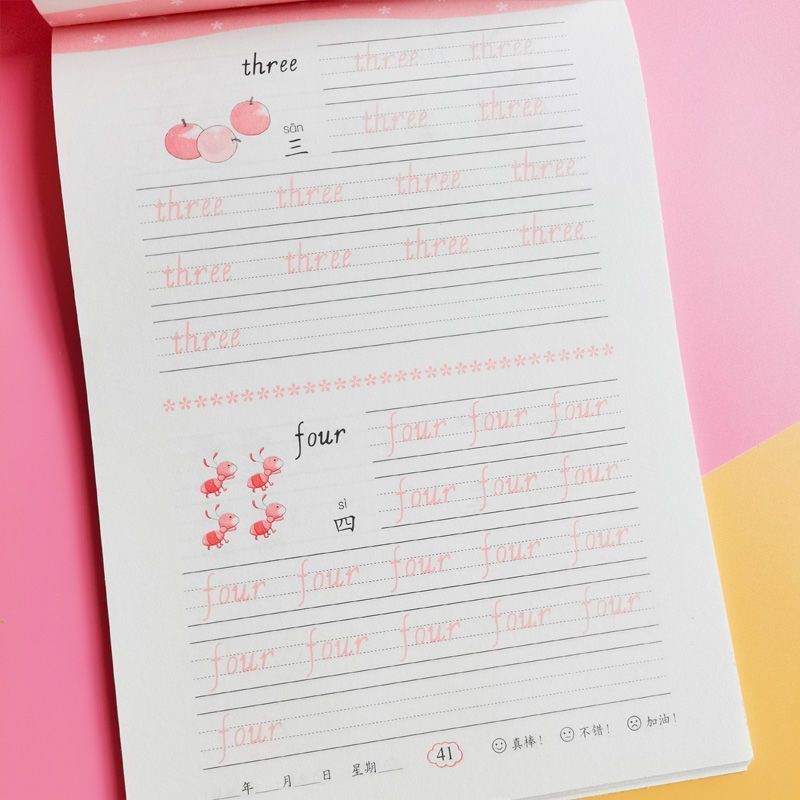 three three three
sān
三 three three
three three three three
three three three three
three
*************************************
four four four four
sì
四 four four four
four four four four four
four four four four four
four
___年___月___日 星期___ 41 真棒! 不错! 加油!